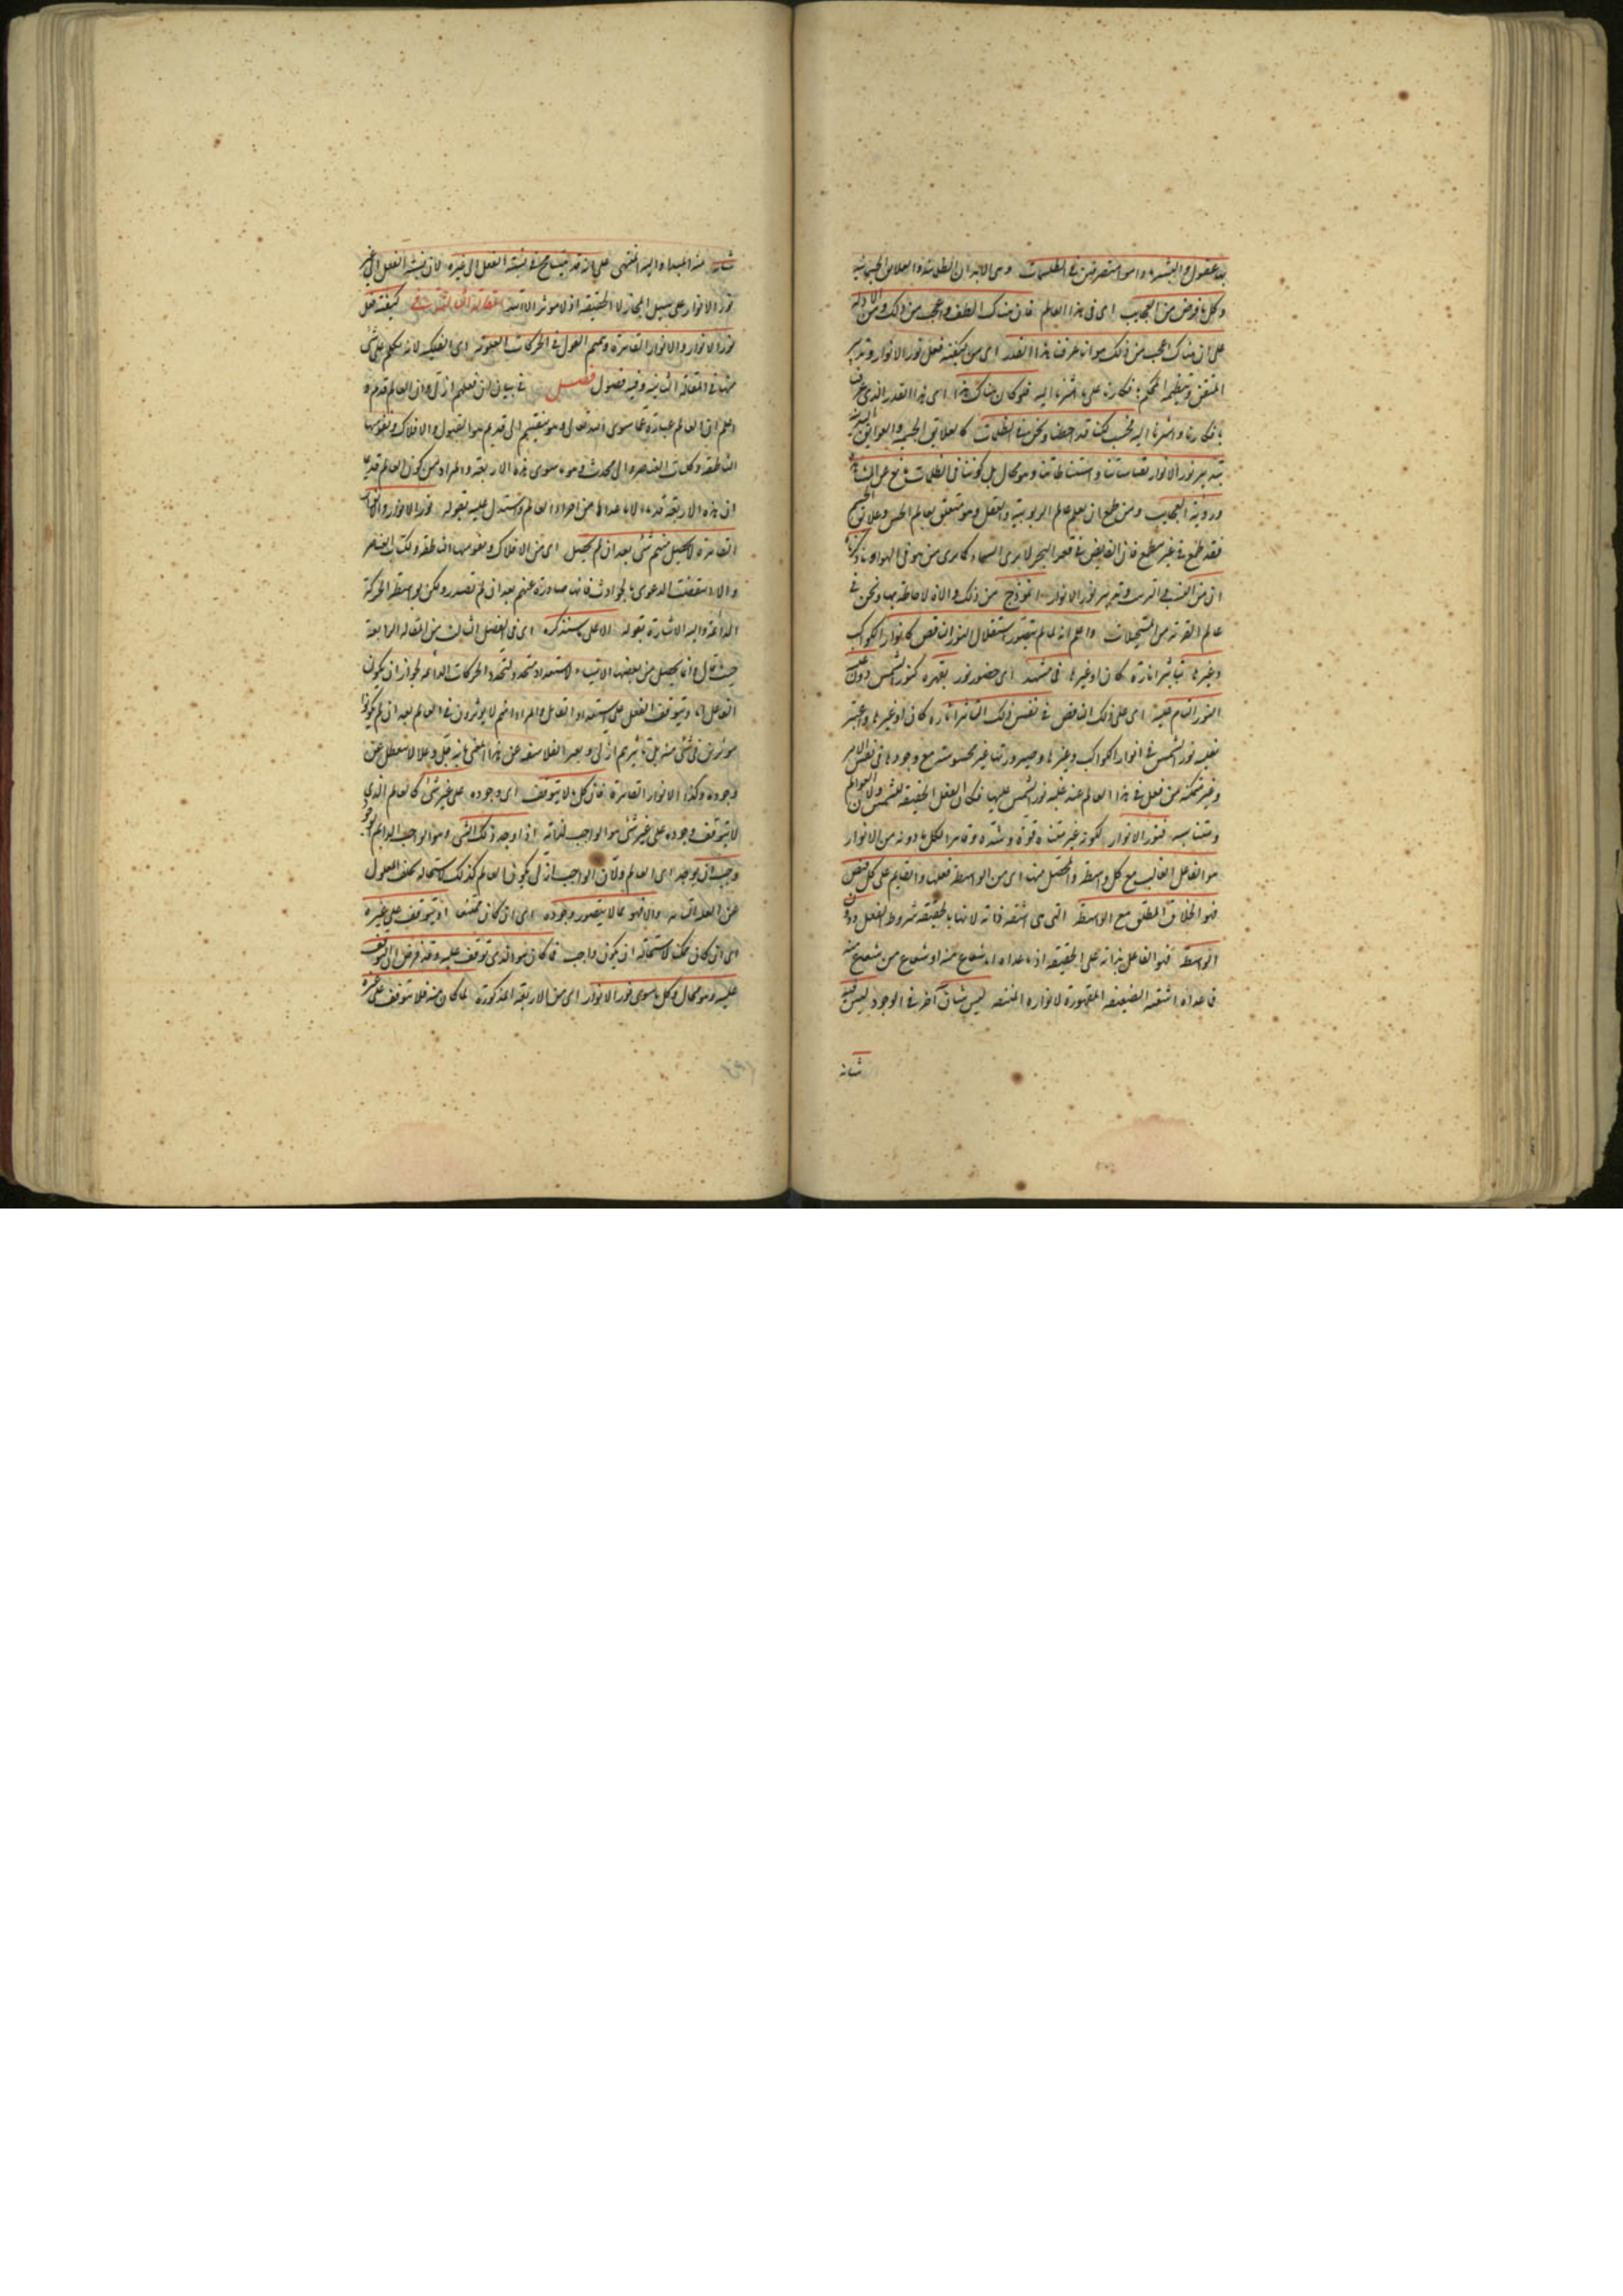 بد عقول البشر وامور متصرفين في الظلمات وهى الابدان الظلمانية والعلايق الجسمانية
وكل ما فرض من العجايب اى فى هذا العالم فان هناك الطف واعجب من ذلك ومن الادلة
على ان هناك اعجب من ذلك هو انا عرفنا هذا القدر اى من كيفية فعل نور الانوار وتدبيره
المتقن ونظمه المحكم بافكارنا على ما اشرنا اليه فلو كان هناك هذا اى هذا القدر الذى عرفنا
بافكارنا واشرنا اليه فحسب لكنا قد احطنا ونحن فى الظلمات كالعلايق الجسمية والعوايق البدنية
بتدبير نور الانوار بقياساتنا واستنباطاتنا وهو محال بل كوننا فى الظلمات مانع عن المشاهدة
ورؤية العجايب ومن طمع ان يعلم عالم الربوبية والعقل وهو متعلق بعالم الحس وعلايق الجسم
فقد طمع فى غير مطمع فان الغايص فى قعر البحر لا يرى السماء كما يرى من هو فى الهواء وما ذكرنا
ان من النسب فى الترتيب وتدبير نور الانوار انموذج من ذلك والا فلا احاطة بها ونحن فى
عالم الغربة من المستحيلات واعلم انه لما لم يتصور استقلال النور الناقص كانوار الكواكب
وغيرها بتاثير انارة كان او غيرها فى مشهد اى حضور نور يقهره كنور الشمس دون غلبة
النور التام عليه اى على ذلك الناقص فى نفس ذلك التاثير انارة كان او غيرها واعتبر
بغلبة نور الشمس فى انوار الكواكب وغيرها وصيرورتها غير محسوسة مع وجودها فى نفس الامر
وغير متمكنة من فعل فى هذا العالم عند غلبة نور الشمس عليها فكان الفعل الحقيقة للشمس ولان العوالم
متناسبة فنور الانوار لكونه غير متناه قوة وشدة وقاهرا لكل ما دونه من الانوار
هو الفاعل الغالب مع كل واسطة والمحصل منها اى من الواسطة فعلها والقايم على كل فيض
فهو الخلاق المطلق مع الواسطة التى هى اشعة ذاته لانها بالحقيقة شروط الفعل ودون
الواسطة فهو الفاعل بذاته على الحقيقة اذ ما عداه اما شعاع منه او شعاع من شعاع منه
فما عداه اشعته الضعيفة المقهورة لانواره المنتهية ليس شان آخر فى الوجود ليس فيه
شانه
شانه منه المبدا واليه المنتهى على انه قد يتسامح فى نسبة الفعل الى غيره لان نسبة الفعل الى غير
نور الانوار على سبيل المجاز لا الحقيقة اذ لا موثر الا الله المقالة الثالثة فى كيفية فعل
نور الانوار والانوار القاهرة وتتميم القول فى الحركات العلوية اى الفلكية لانه تكلم على شى
منها فى المقالة الثانية وفيه فصول فصل فى بيان ان فعلهم ازلى وان العالم قديم
اعلم ان العالم عبارة عما سوى الله تعالى وهو منقسم الى قديم هو العقول والافلاك ونفوسها
الناطقة وكليات العناصر والى محدث وهو ما سوى هذه الاربعة والمراد من كون العالم قديما
ان هذه الاربعة قديمة لا ما عداها من اجزاء العالم واستدل عليه بقوله نور الانوار والانوار
القاهرة لا يحصل منهم شئ بعد ان لم يحصل اى من الافلاك ونفوسها الناطقة وكليات العناصر
والا انتقضت الدعوى بالحوادث فانها صادرة عنهم بعد ان لم تصدر ولكن بواسطة الحركة
الدائمة واليه الاشارة بقوله الا على ما سنذكره اى فى الفصل الثالث من المقالة الرابعة
حيث قال وانما يحصل من بعضها الاشياء لاستعداد متجدد لتجدد الحركات الدائمة لجواز ان يكون
الفاعل تاما ويتوقف الفعل على استعداد القابل والمراد انهم لا يوثرون فى العالم بعد ان لم يكونوا
موثرين فى شئ منه بل تاثيرهم ازلى ويعبر الفلاسفة عن هذا المعنى بانه جل وعلا لا تتعطل عن
وجوده وكذا الانوار القاهرة فان كل ما لا يتوقف اى وجوده على غير شئ كالعالم الذى
لا يتوقف وجوده على غير شئ هو الواجب لذاته اذا وجد ذلك الشئ وهو الواجب الدايم الوجود
وجب ان يوجد اى العالم ولان الواجب ازلى يكون العالم كذلك لاستحالة تخلف المعلول
عن العلة التامة والا فهو مما لا يتصور وجوده اى ان كان ممتنعا او يتوقف على غيره
اى ان كان ممكنا لاستحالة ان يكون واجبا فما كان هو الذى توقف عليه وقد فرض ان التوقف
عليه وهو محال وكل ما سوى نور الانوار اى من الاربعة المذكورة لما كان منه فلا يتوقف على غيره